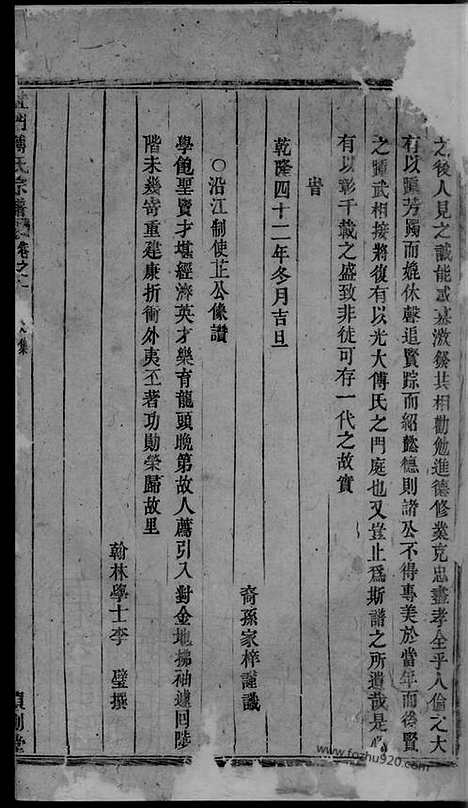 之後人見之誠能感慕激發共相勸勉進德修業克忠盡孝全乎人倫之大
有以躡芳躅而媲休聲追賢踪而紹懿德則諸公不得專美於當年而後賢
之踵武相接將復有以光大傅氏之門庭也又豈止爲斯譜之所遺哉是
有以彰千載之盛致非徒可存一代之故實
旹
乾隆四十二年冬月吉旦
裔孫家梓謹識
○沿江制使芷公像讚
學飽聖賢才堪經濟英才樂育龍頭晚第故人薦引入對金地拂袖遽回陞
階未幾寄重建康折衝外夷丕著功勛榮歸故里
翰林學士李 璧撰
門傅氏宗譜 卷之
集
堂
www.fozhu920.com